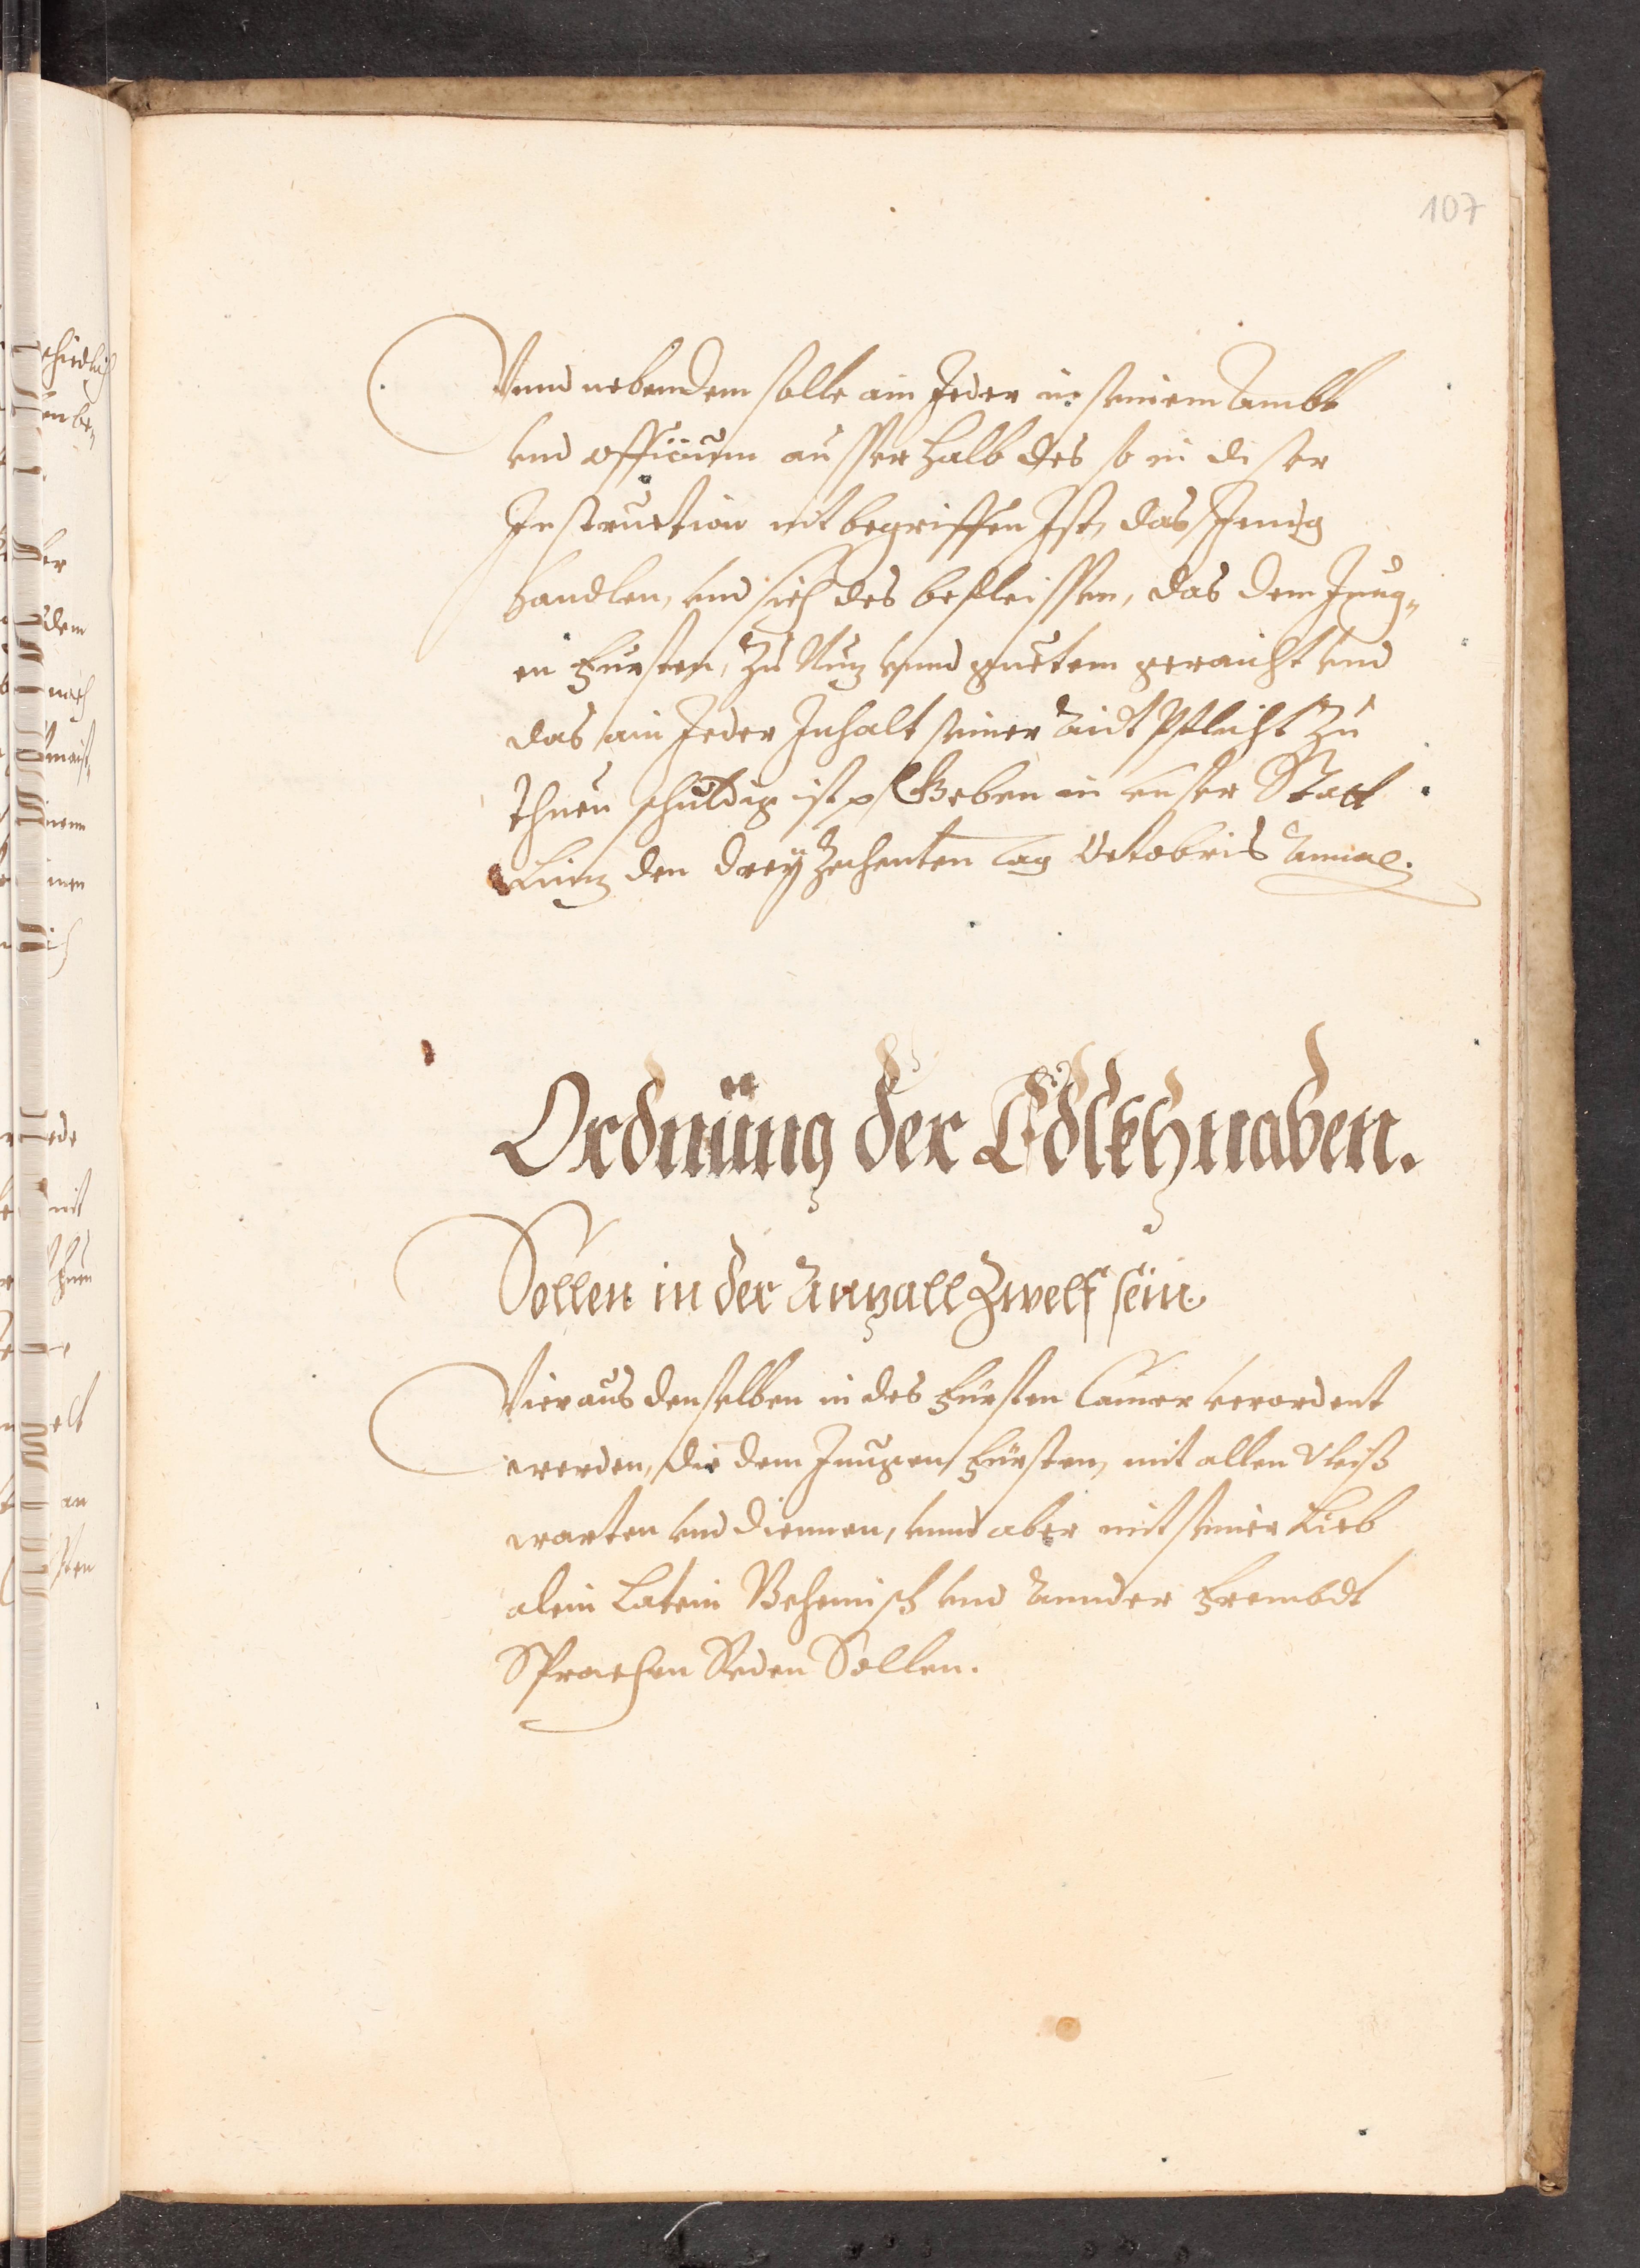 107
Vnnd nebendem solle ain Jeder in seinem Ambt
vnd officium ausserhalb des so in diser
Instruction nit begriffen Ist, das Jenig
handlen, vnd sich des befleissen, das dem Jung„
en Fürsten, zu Nuz vnnd guetem geraicht vnd
das ain Jeder Inhalt seiner Aidt Pflicht zu
Thuen schuldig ist Geben in vnser Statt
Linz den dreÿzehenten tag Octobris
Ordnung der Edlkhnaben.
Sollen in der Anzall Zwelf sein
Vier aus denselben in des Fürsten Camer verordent
werden, die dem Jungen Fürsten, mit allen Vleiß
warten vnd diennen, vnnd aber mit seiner Lieb
alein Latein Behemisch vnd Annder Frembdt
Sprachen Reden Sollen.
schiedlich
ber
dem
nach
inen
mit
elt
an